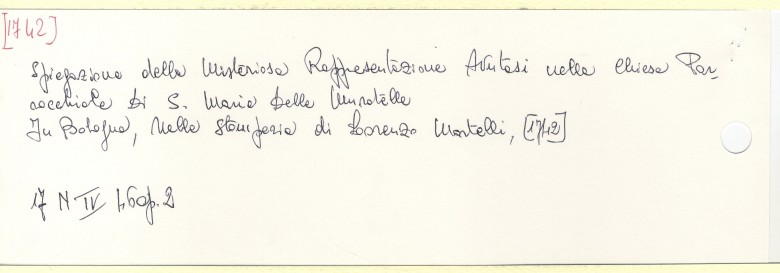 [1742]
Spiegazione della Misteriosa Rappresentazione Avutasi nella Chiesa Par
rocchiale Di S. Maria Delle Muratelle
In Bologna, Nella stamperia di Lorenzo Martelli, [1742]
17 N IV 1,6 op. 2